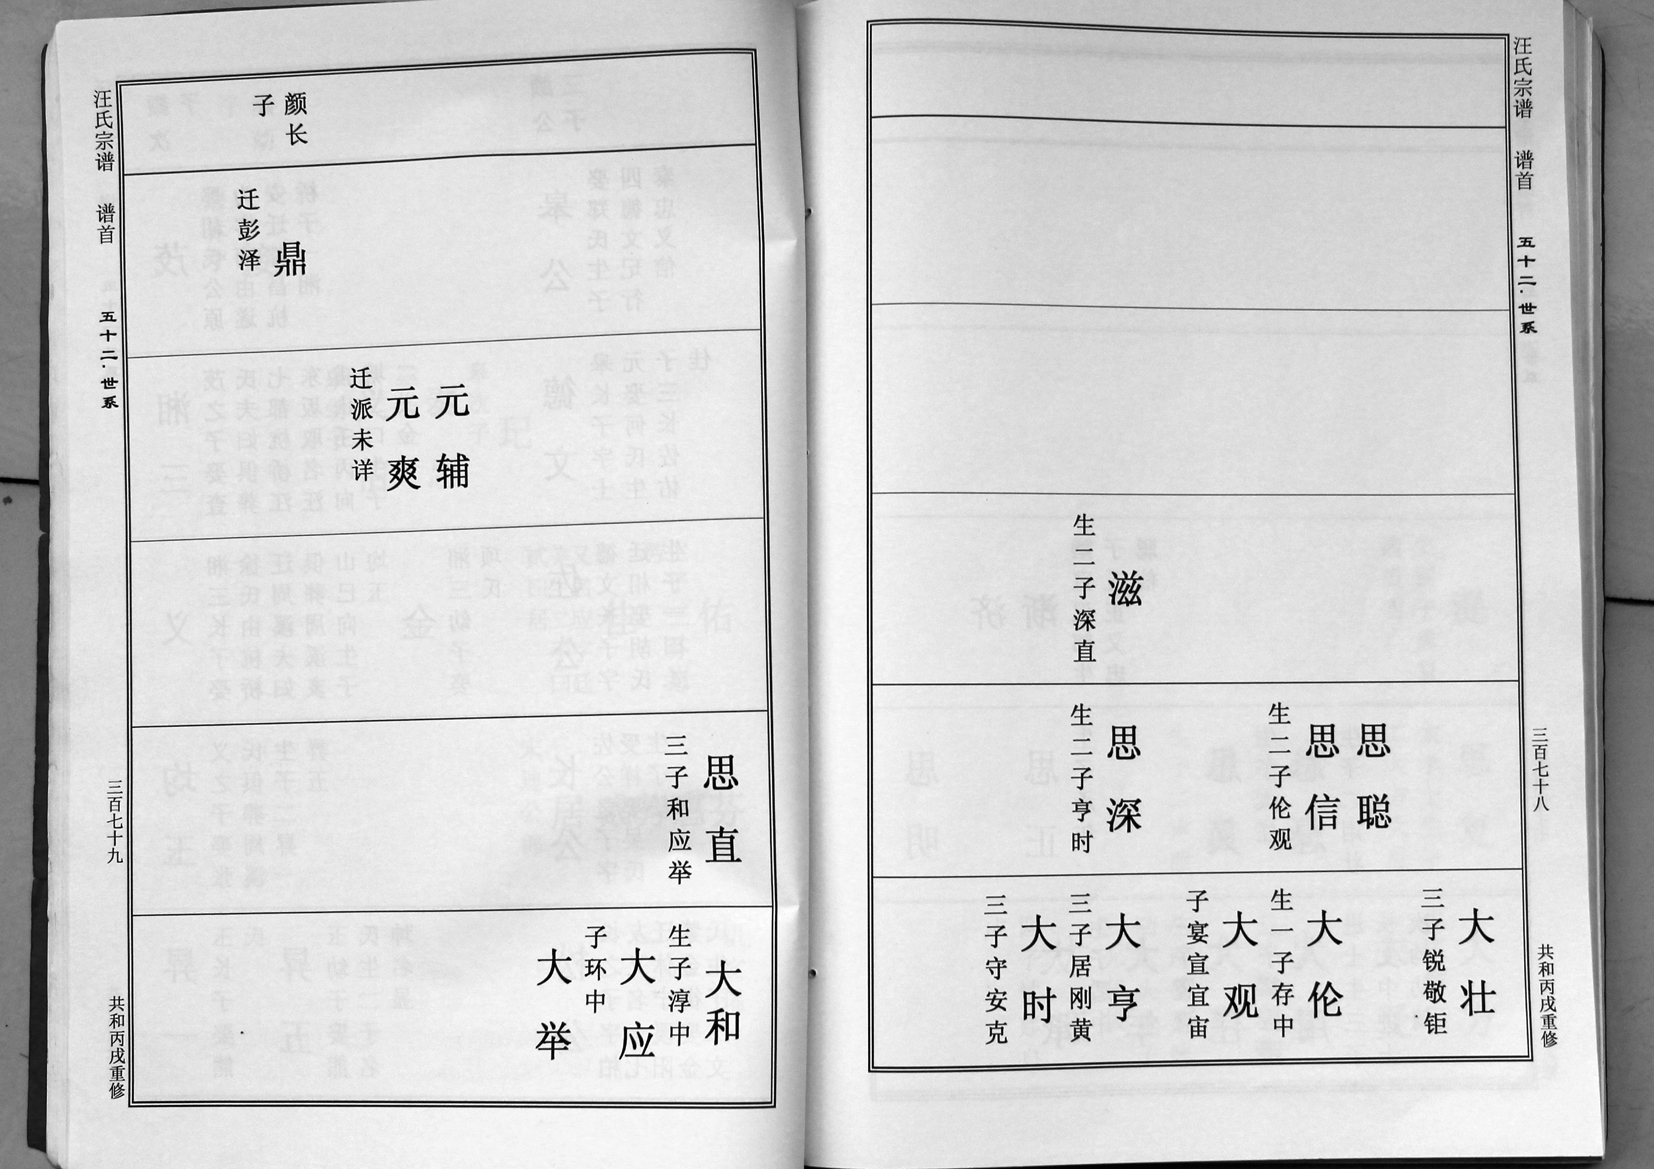 汪氏宗谱 谱首 五十二·世系 三百七十八 共和丙戌重修
滋
生二子深直
思聪
思信
生二子伦观
思深
生二子亨时
大壮
三子锐敬钜
大伦
生一子存中
大观
子宴宣宜宙
大亨
三子居刚黄
大时
三子守安克
颜长
子
鼎
迁彭泽
元辅
元爽
迁派未详
思直
三子和应举
大和
生子淳中
大应
子环中
大举
汪氏宗谱 谱首 五十二·世系 三百七十九 共和丙戌重修